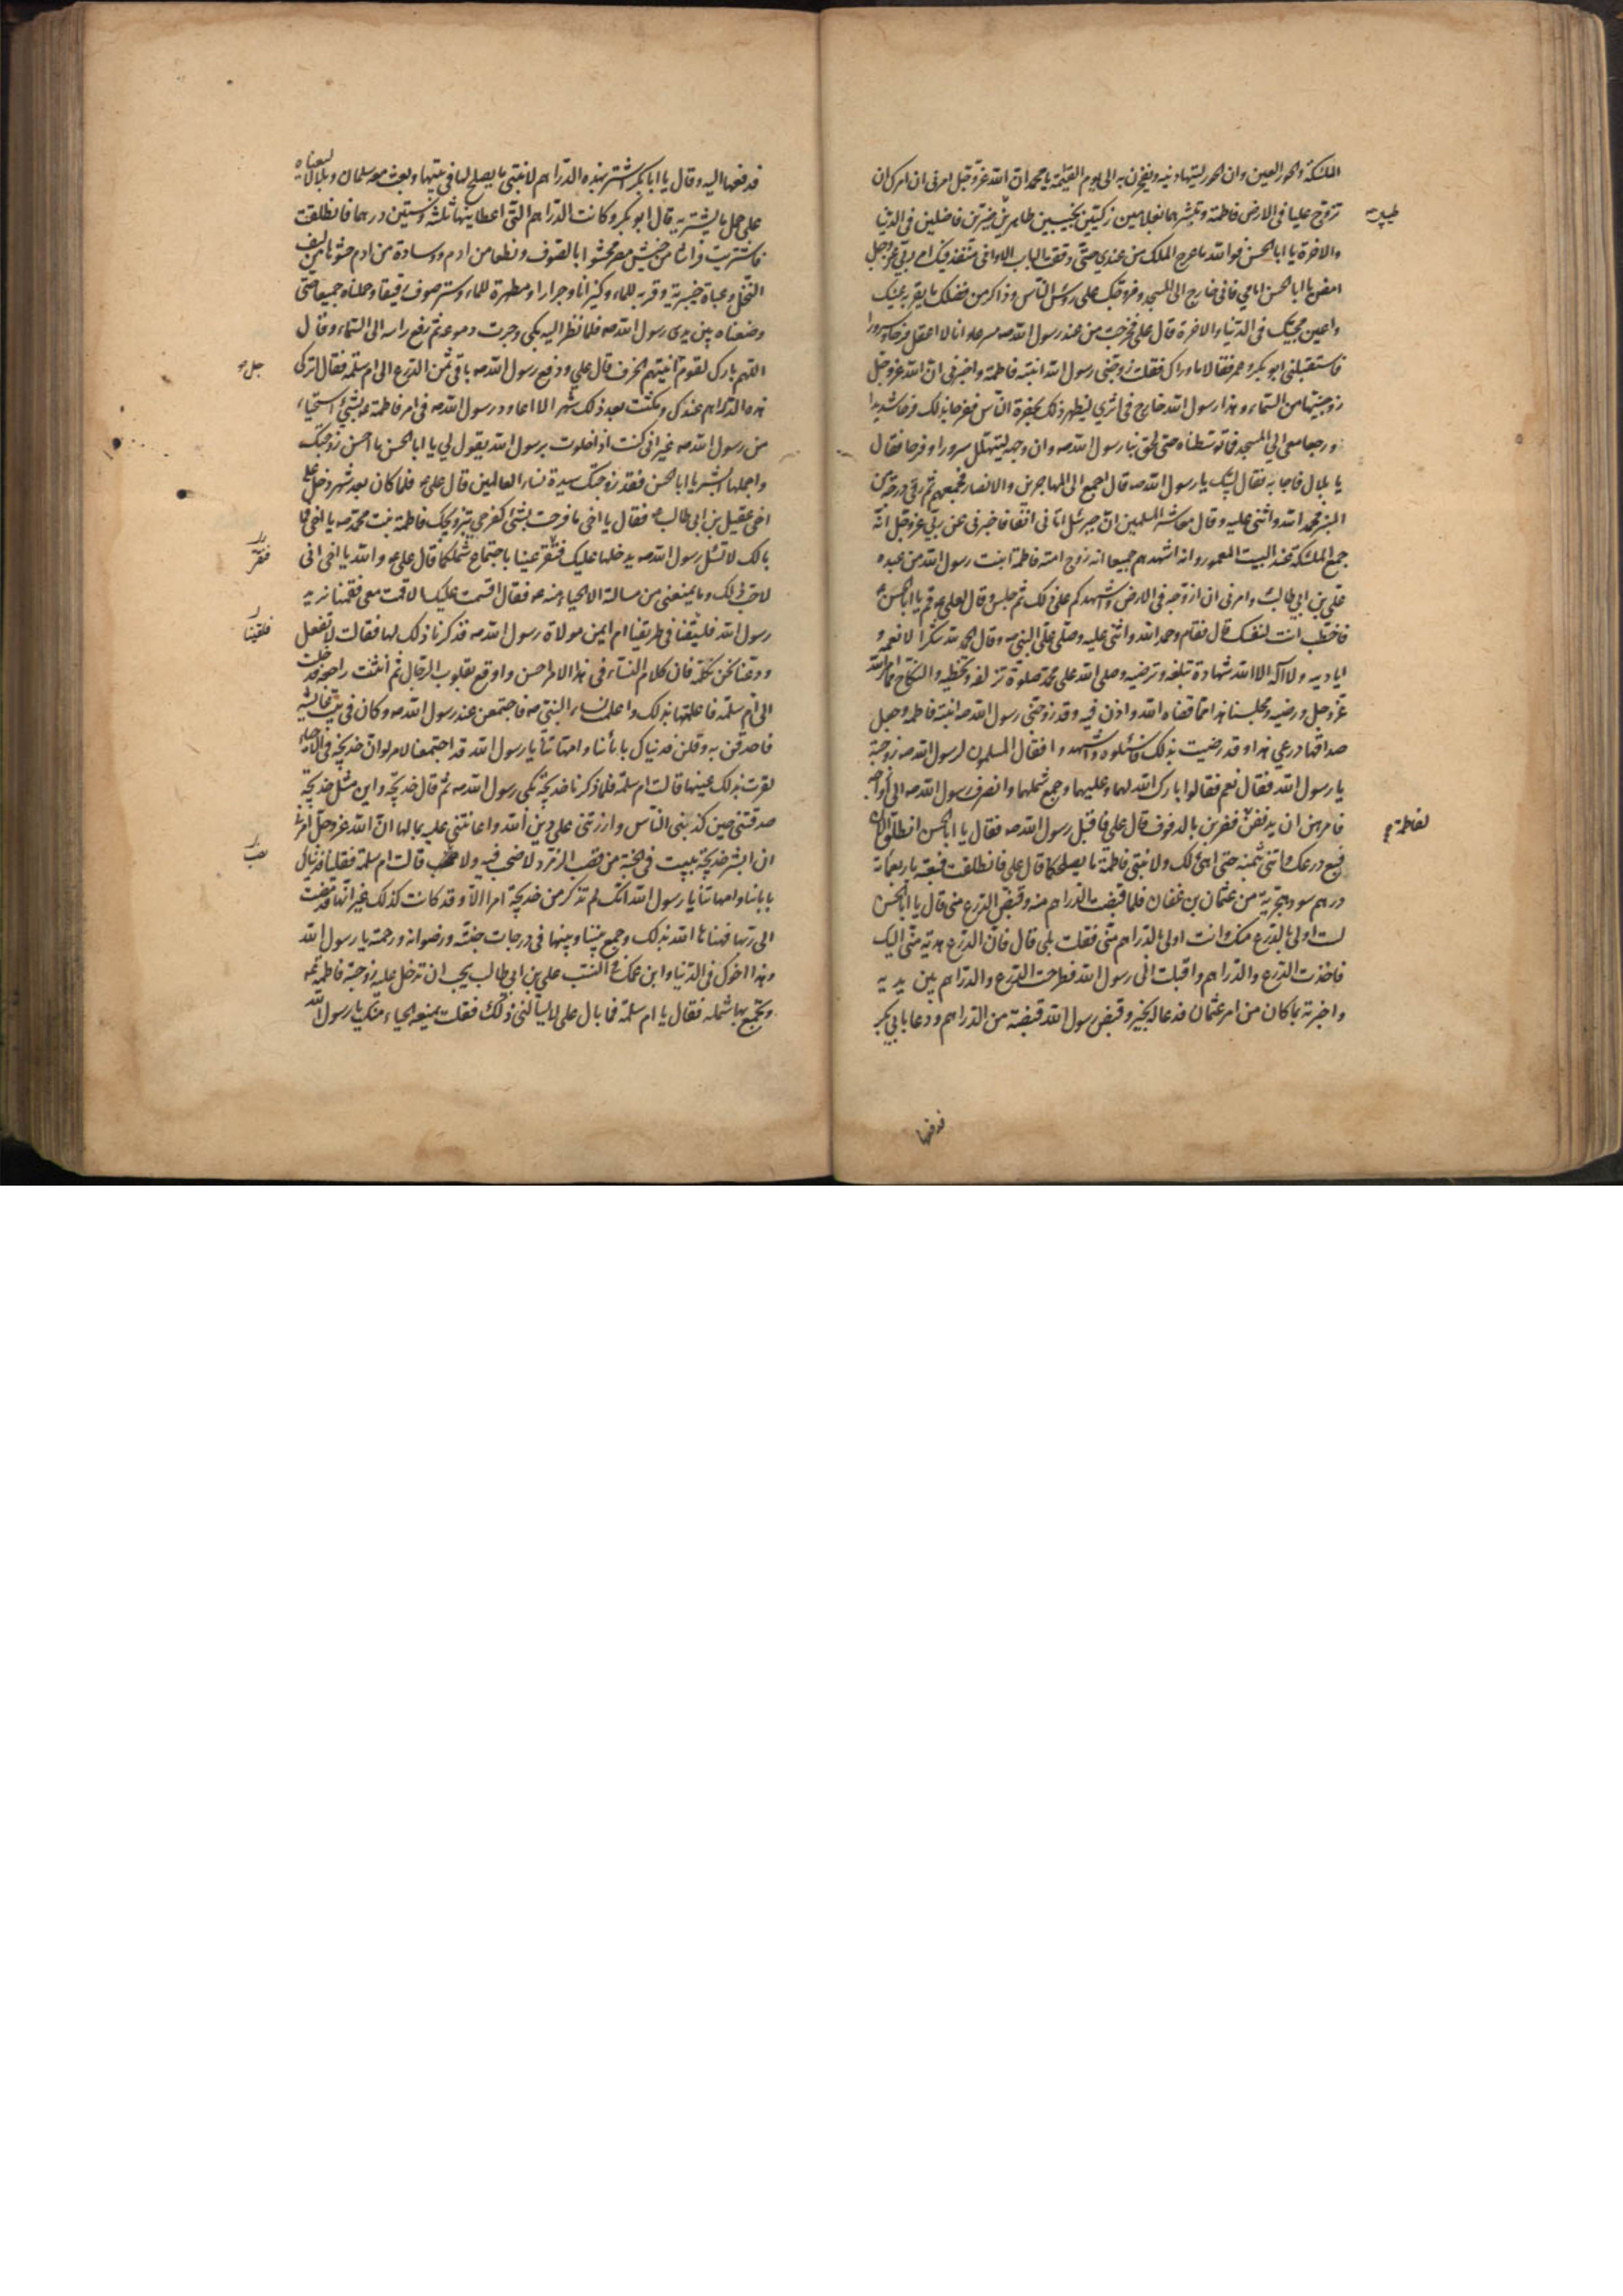 الملئكة والحور العين وان الحور ليتهادينه ويفخرن به الى يوم القيمة يا محمد ان الله عز وجل امرنى ان امرك ان
تزوج عليا فى الارض فاطمة وتبشرهما بغلامين زكيين نجيبين طاهرين خيرين فاضلين فى الدنيا
والاخرة يا ابا الحسن فوالله ما عرج الملك من عندى حتى دققت الباب الا وانى منفذ فيك امر ربى عز وجل
امض يا ابا الحسن امامى فانى خارج الى المسجد ومزوجك على رؤس الناس وذاكر من فضلك ما يقر به عينك
واعين محبيك فى الدنيا والاخرة قال على فخرجت من عند رسول الله ص مسرعا وانا لا اعقل فرحا وسرورا
فاستقبلنى ابو بكر وعمر فقالا ما وراك فقلت زوجنى رسول الله ابنته فاطمة واخبرنى ان الله عز وجل
زوجنيها من السماء وهذا رسول الله خارج فى اثرى ليظهر ذلك بحضرة الناس ففرحا بذلك فرحا شديدا
ورجعا معى الى المسجد فما توسطناه حتى لحق بنا رسول الله ص وان وجهه ليتهلل سرورا وفرحا فقال
يا بلال فاجابه فقال لبيك يا رسول الله ص قال اجمع الى المهاجرين والانصار فجمعهم ثم رقى درجة من
المنبر فحمد الله واثنى عليه وقال معاشر المسلمين ان جبرئيل اتانى انفا فاخبرنى عن ربى عز وجل انه
جمع الملئكة عند البيت المعمور وانه اشهدهم جميعا انه زوج امته فاطمة ابنت رسول الله من عبده
على بن ابى طالب وامرنى ان ازوجه فى الارض واشهدكم على ذلك ثم جلس وقال لعلى ع قم يا ابا الحسن
فاخطب انت لنفسك قال فقام وحمد الله واثنى عليه وصلى على النبى ص وقال الحمد لله شكرا لانعمه و
اياديه ولا اله الا الله شهادة تبلغه وترضيه وصلى الله على محمد صلوة تزلفه وتحظيه والنكاح مما امر الله
عز وجل ورضيه ومجلسنا هذا مما قضاه الله واذن فيه وقد زوجنى رسول الله ص ابنته فاطمه وجعل
صداقها درعى هذا وقد رضيت بذلك فاسئلوه واشهدوا فقال المسلمون لرسول الله ص زوجته
يا رسول الله فقال نعم فقالوا بارك الله لهما وعليهما وجمع شملهما وانصرف رسول الله ص الى ازواجه
فامرهن ان يدففن فضربن بالدفوف قال على فاقبل رسول الله ص فقال يا ابا الحسن انطلق الان
فبع درعك وائتنى بثمنه حتى اهيئ لك ولابنتى فاطمة ما يصلحكما قال على فانطلقت فبعته باربعمائة
درهم سود هجرية من عثمان بن عفان فلما قبضت الدراهم منه وقبض الدرع منى قال يا ابا الحسن
لست اولى بالدرع منك وانت اولى بالدراهم منى فقلت بلى قال فان الدرع هدية منى اليك
فاخذت الدرع والدراهم واقبلت الى رسول الله فطرحت الدرع والدراهم بين يديه
واخبرته بما كان من امر عثمان فدعا له بخير وقبض رسول الله قبضة من الدراهم ودعا بابى بكر
فدفعها
لفاطمة
فدفعها اليه وقال يا ابا بكر اشتر بهذه الدراهم لابنتى ما يصلح لها فى بيتها وبعث معه سلمان وبلالا ليعيناه
على حمل ما يشتريه قال ابو بكر وكانت الدراهم التى اعطانيها ثلثة وستين درهما فانطلقت
فاشتريت فراشا من خيش مصر محشوا بالصوف ونطعا من ادم ووسادة من ادم حشوها من ليف
النخل وعباة خيبرية وقربة للماء وكيزانا وجرارا ومطهرة للماء وستر صوف رقيقا وحملناه جميعا حتى
وضعناه بين يدى رسول الله ص فلما نظر اليه بكى وجرت دموعه ثم رفع راسه الى السماء وقال
اللهم بارك لقوم انيتهم الخزف قال على ودفع رسول الله ص باقى ثمن الدرع الى ام سلمة فقال اتركى
هذه الدراهم عندك ومكثت بعد ذلك شهرا لا اعاود رسول الله ص فى امر فاطمة ع بشئ استحياء
من رسول الله ص غير انى كنت اذا خلوت برسول الله يقول لى يا ابا الحسن ما احسن زوجتك
واجملها ابشر يا ابا الحسن فقد زوجتك سيدة نساء العالمين قال على ع فلما كان بعد شهر دخل على
اخى عقيل بن ابى طالب فقال يا اخى ما فرحت بشئ كفرحى بتزويجك فاطمة بنت محمد ص يا اخى فما
بالك لا تسئل رسول الله ص يدخلها عليك فنقر عينا باجتماع شملكما قال على ع والله يا اخى انى
لاحب ذلك وما يمنعنى من مسالته الا الحياء منه ع فقال اقسمت عليك الا قمت معى فقمنا نريد
رسول الله فلقيتنا فى طريقنا ام ايمن مولاة رسول الله ص فذكرنا ذلك لها فقالت لا تفعل
ودعنا نحن نكلمه فان كلام النساء فى هذا الامر احسن واوقع بقلوب الرجال ثم انثنت راجعة فدخلت
الى ام سلمة فاعلمتها بذلك واعلمت نساء النبى ص فاجتمعن عند رسول الله ص وكان فى بيت عايشة
فاحدقن به وقلن فديناك بابائنا وامهاتنا يا رسول الله قد اجتمعنا لامر لو ان خديجة فى الاحياء
لقرت بذلك عينها قالت ام سلمة فلما ذكرنا خديجة بكى رسول الله ص ثم قال خديجة واين مثل خديجة
صدقتنى حين كذبنى الناس وازرتنى على دين الله واعانتنى عليه بمالها ان الله عز وجل امرنى
ان ابشر خديجة ببيت فى الجنة من قصب الزمرد لا صخب فيه ولا نصب قالت ام سلمة فقلنا فديناك
بابائنا وامهاتنا يا رسول الله انك لم تذكر من خديجة امرا الا وقد كانت كذلك غير انها قد مضت
الى ربها فهناها الله بذلك وجمع بيننا وبينها فى درجات جنته ورضوانه ورحمته يا رسول الله
وهذا اخوك فى الدنيا وابن عمك فى النسب على بن ابى طالب يحب ان تدخل عليه زوجته فاطمة
وتجمع بها شمله فقال يا ام سلمة فما بال على لا يسالنى ذلك فقلت يمنعه الحياء منك يا رسول الله